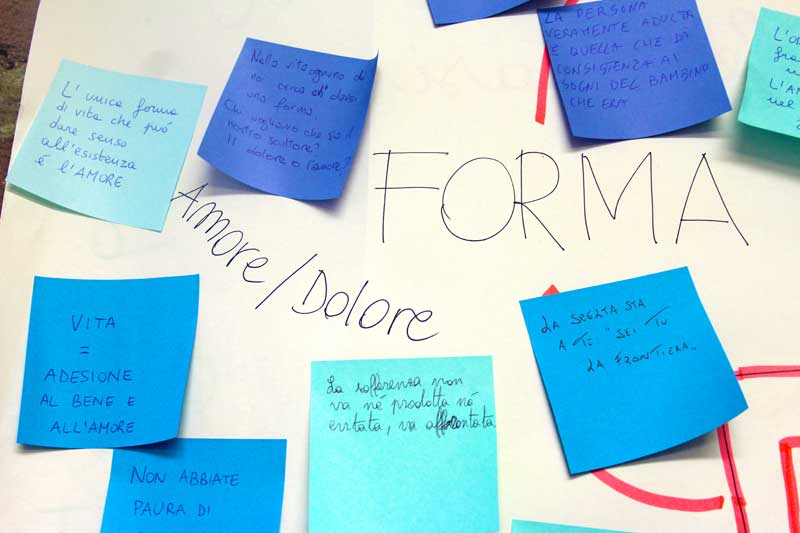 L'unica forma
di vita che può
dare senso
all'esistenza
é l'AMORE
Nella vita ognuno di
noi cerca di darsi
una forma.
Chi vogliamo che sia il
nostro scultore?
Il dolore o l'amore?
LA PERSONA
VERAMENTE ADULTA
E QUELLA CHE DA
CONSISTENZA AI
SOGNI DEL BAMBINO
CHE ERA
L'AM
nel
FORMA
Amore/Dolore
VITA
=
ADESIONE
AL BENE E
ALL'AMORE
La sofferenza non
va né prodotta né
evitata, va affrontata
LA SCELTA STA
A TE "SEI TU
LA FRONTIERA"
NON ABBIATE
PAURA DI